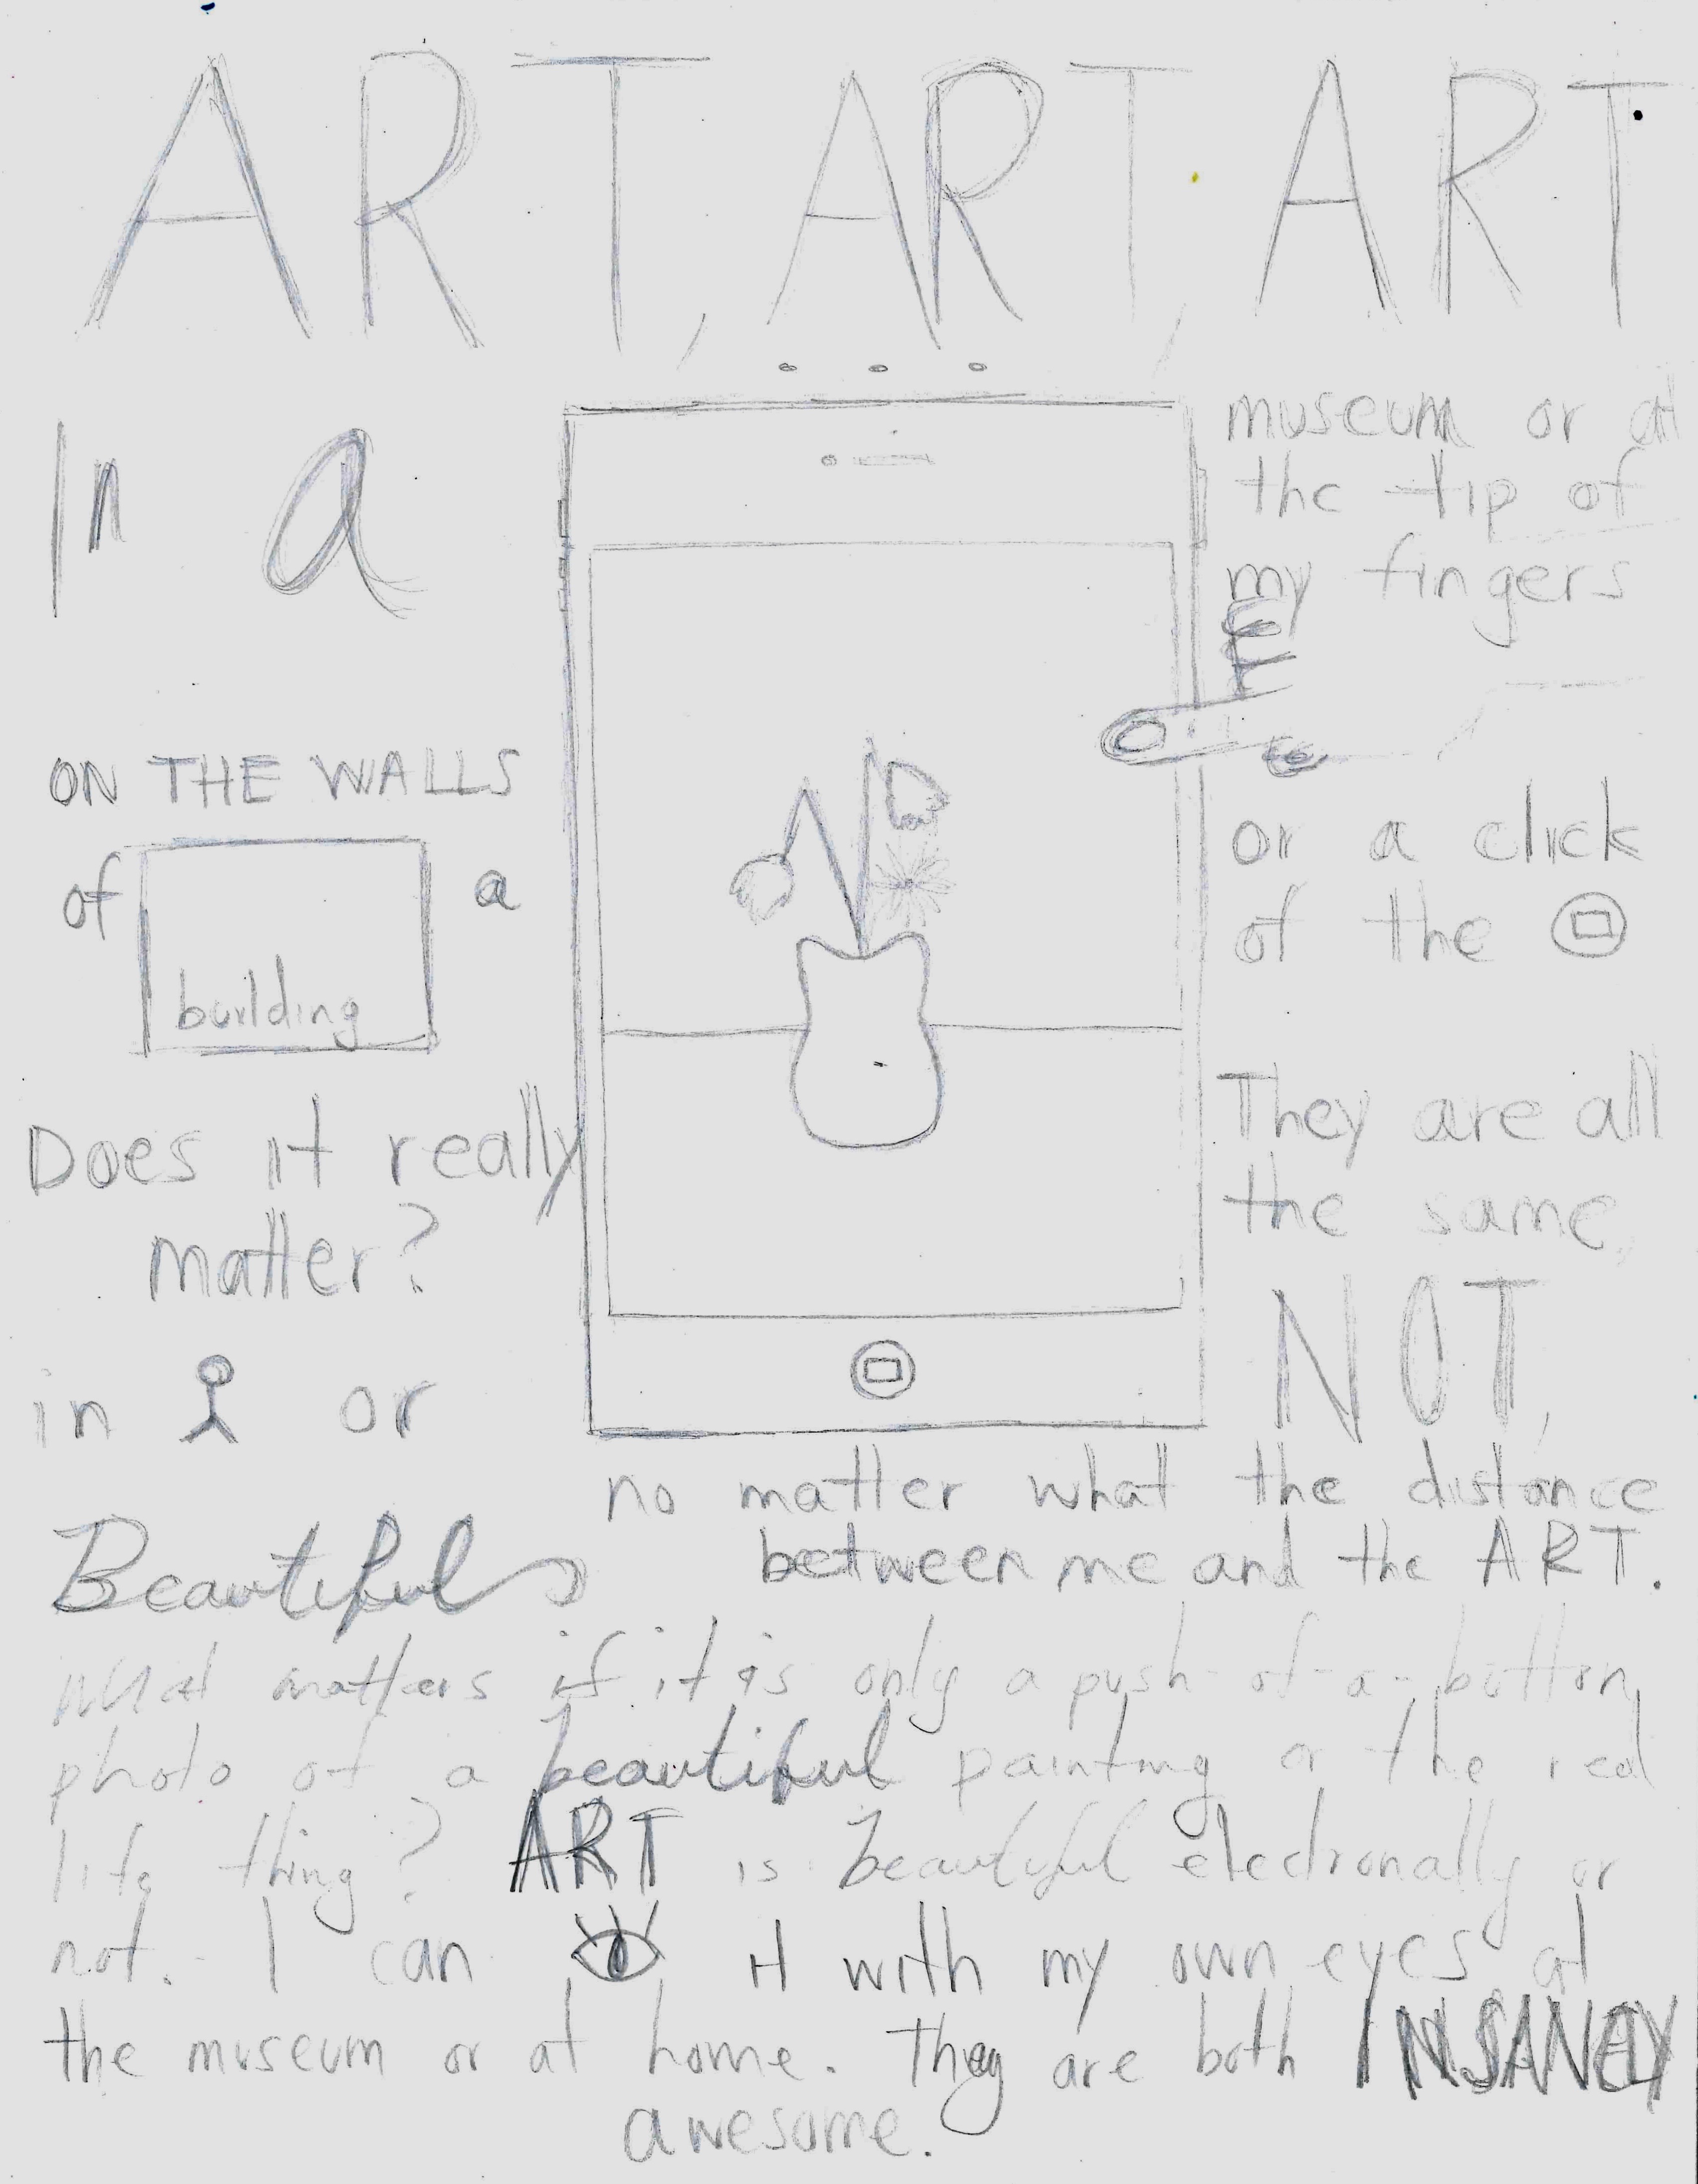 ART, ART, ART
...
In a
museum or at
the tip of
my fingers
ON THE WALLS
of building a
or a click
of the
Does it really
matter?
They are all
the same,
NOT,
in or
no matter what the distance
between me and the ART.
Beautiful
what matters if it is only a push-of-a-button
photo of a beautiful painting or the real
life thing? ART is beautiful electronally or
not. I can it with my own eyes at
the museum or at home. They are both INSANELY
awesome.